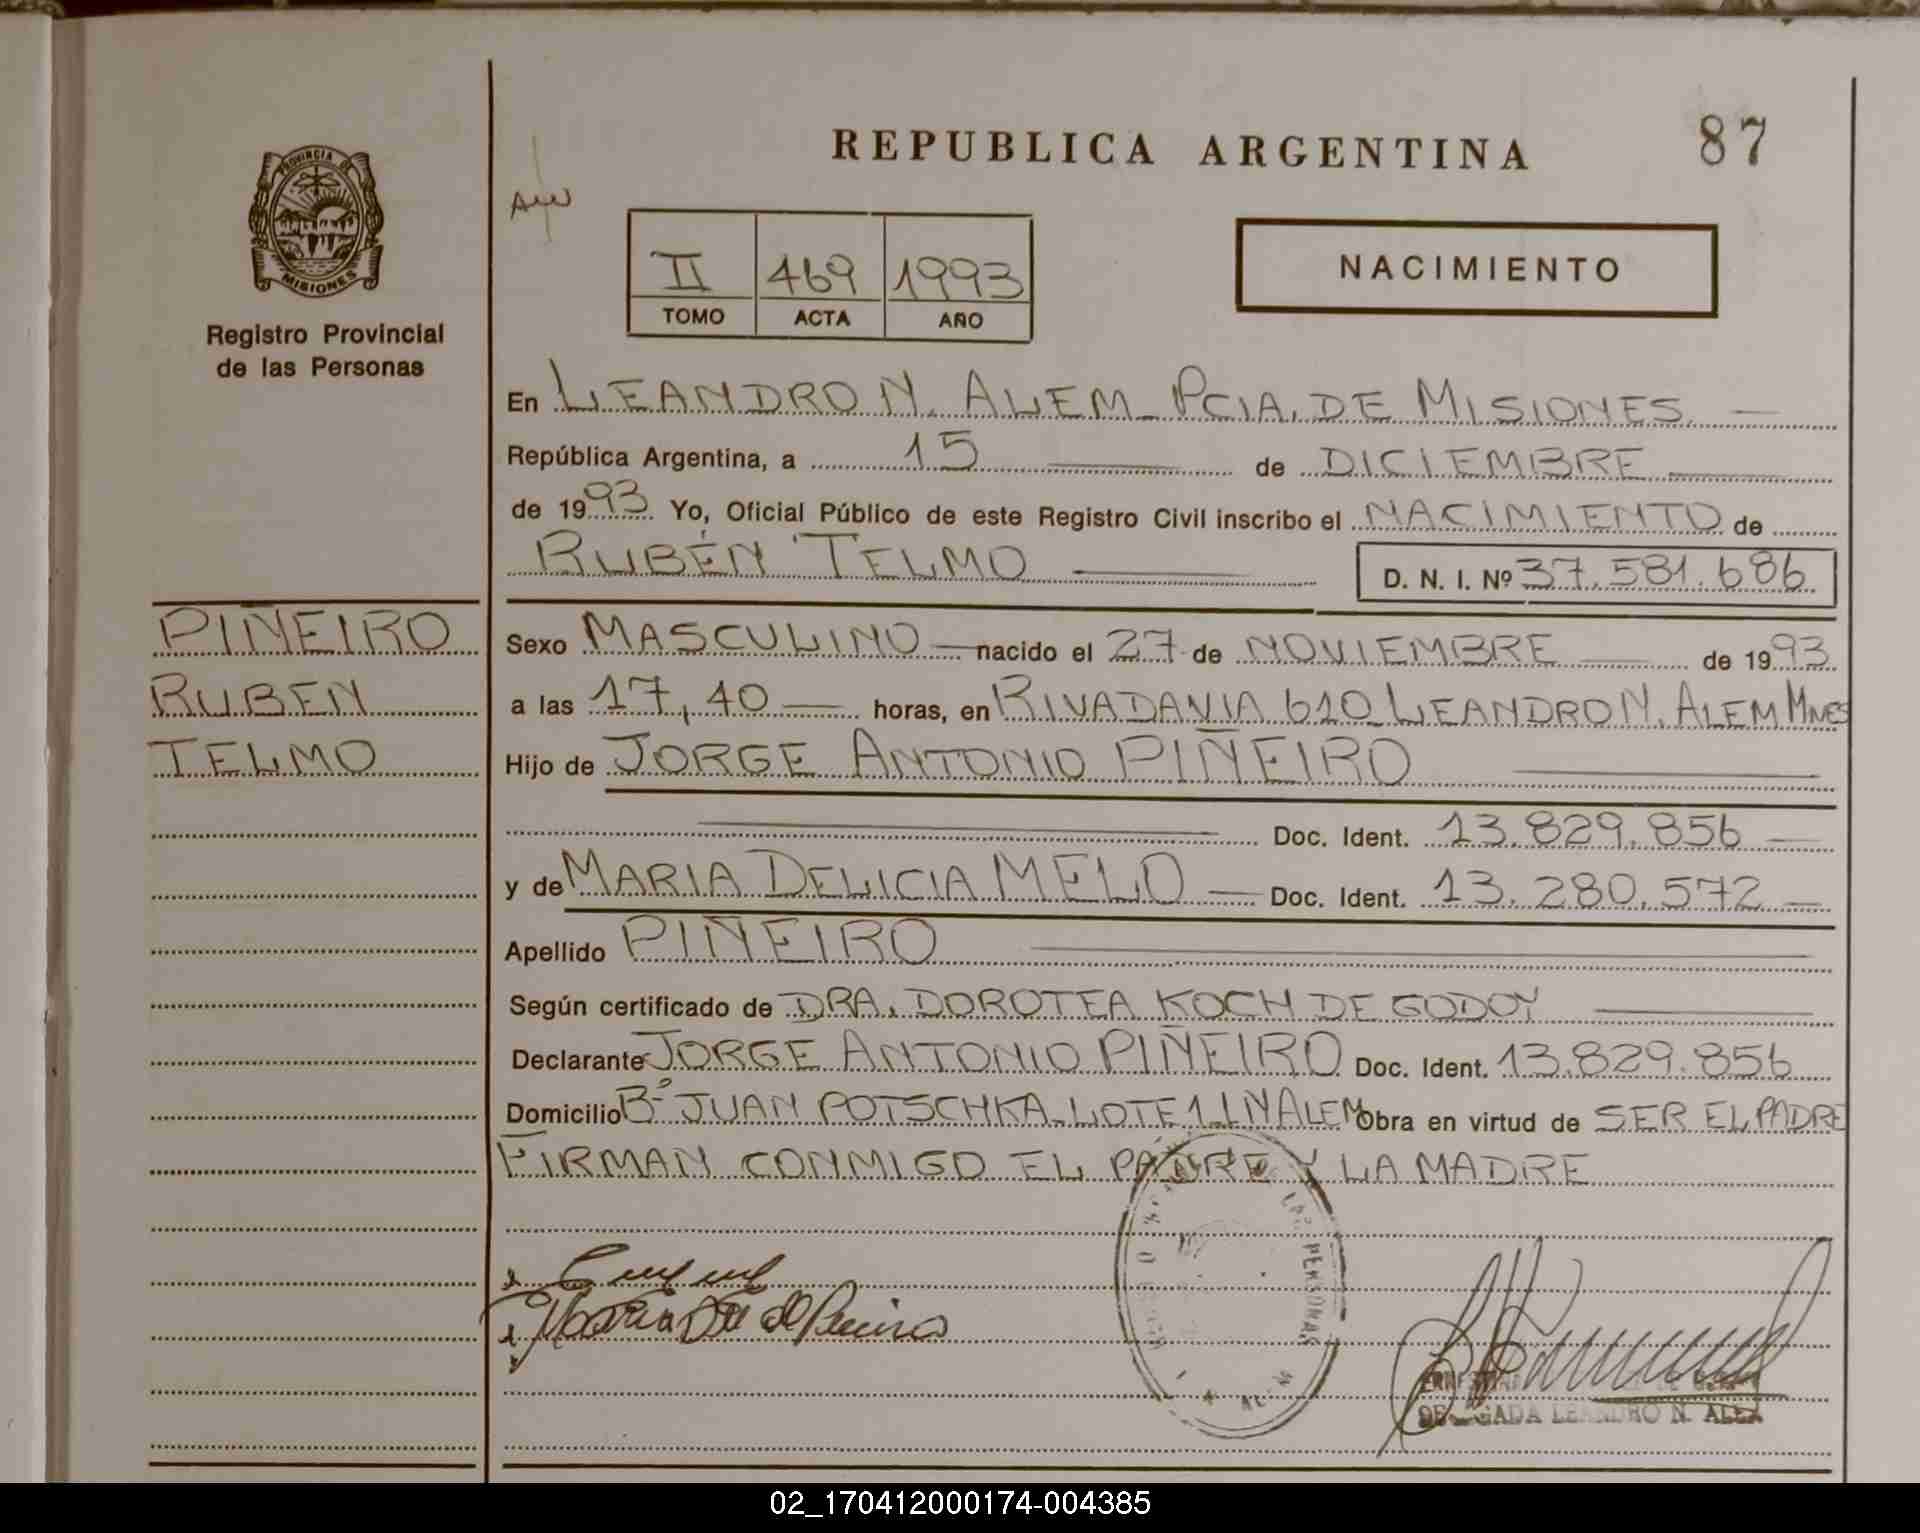 87
REPUBLICA ARGENTINA
PROVINCIA DE
MISIONES
Registro Provincial
de las Personas
II 469 1993
TOMO ACTA AÑO
NACIMIENTO
En LEANDRO N. ALEM - PCIA. DE MISIONES. —
República Argentina, a 15 — de DICIEMBRE
de 1993 Yo, Oficial Público de este Registro Civil inscribo el NACIMIENTO de
RUBÉN TELMO — D. N. I. Nº 37.581.686
PIÑEIRO
RUBEN
TELMO
Sexo MASCULINO — nacido el 27 de NOVIEMBRE — de 1993
a las 17,40 — horas, en RIVADAVIA 610 - LEANDRO N. ALEM MNES
Hijo de JORGE ANTONIO PIÑEIRO —
Doc. Ident. 13.829.856 —
y de MARIA DELICIA MELO — Doc. Ident. 13.280.572 —
Apellido PIÑEIRO —
Según certificado de DRA. DOROTEA KOCH DE GODOY —
Declarante JORGE ANTONIO PIÑEIRO Doc. Ident. 13.829.856
Domicilio Bº JUAN POTSCHKA - LOTE 1 - LN ALEM Obra en virtud de SER EL PADRE
FIRMAN CONMIGO EL PADRE Y LA MADRE
LAS PERSONAS
LEANDRO N. ALEM
02_170412000174-004385